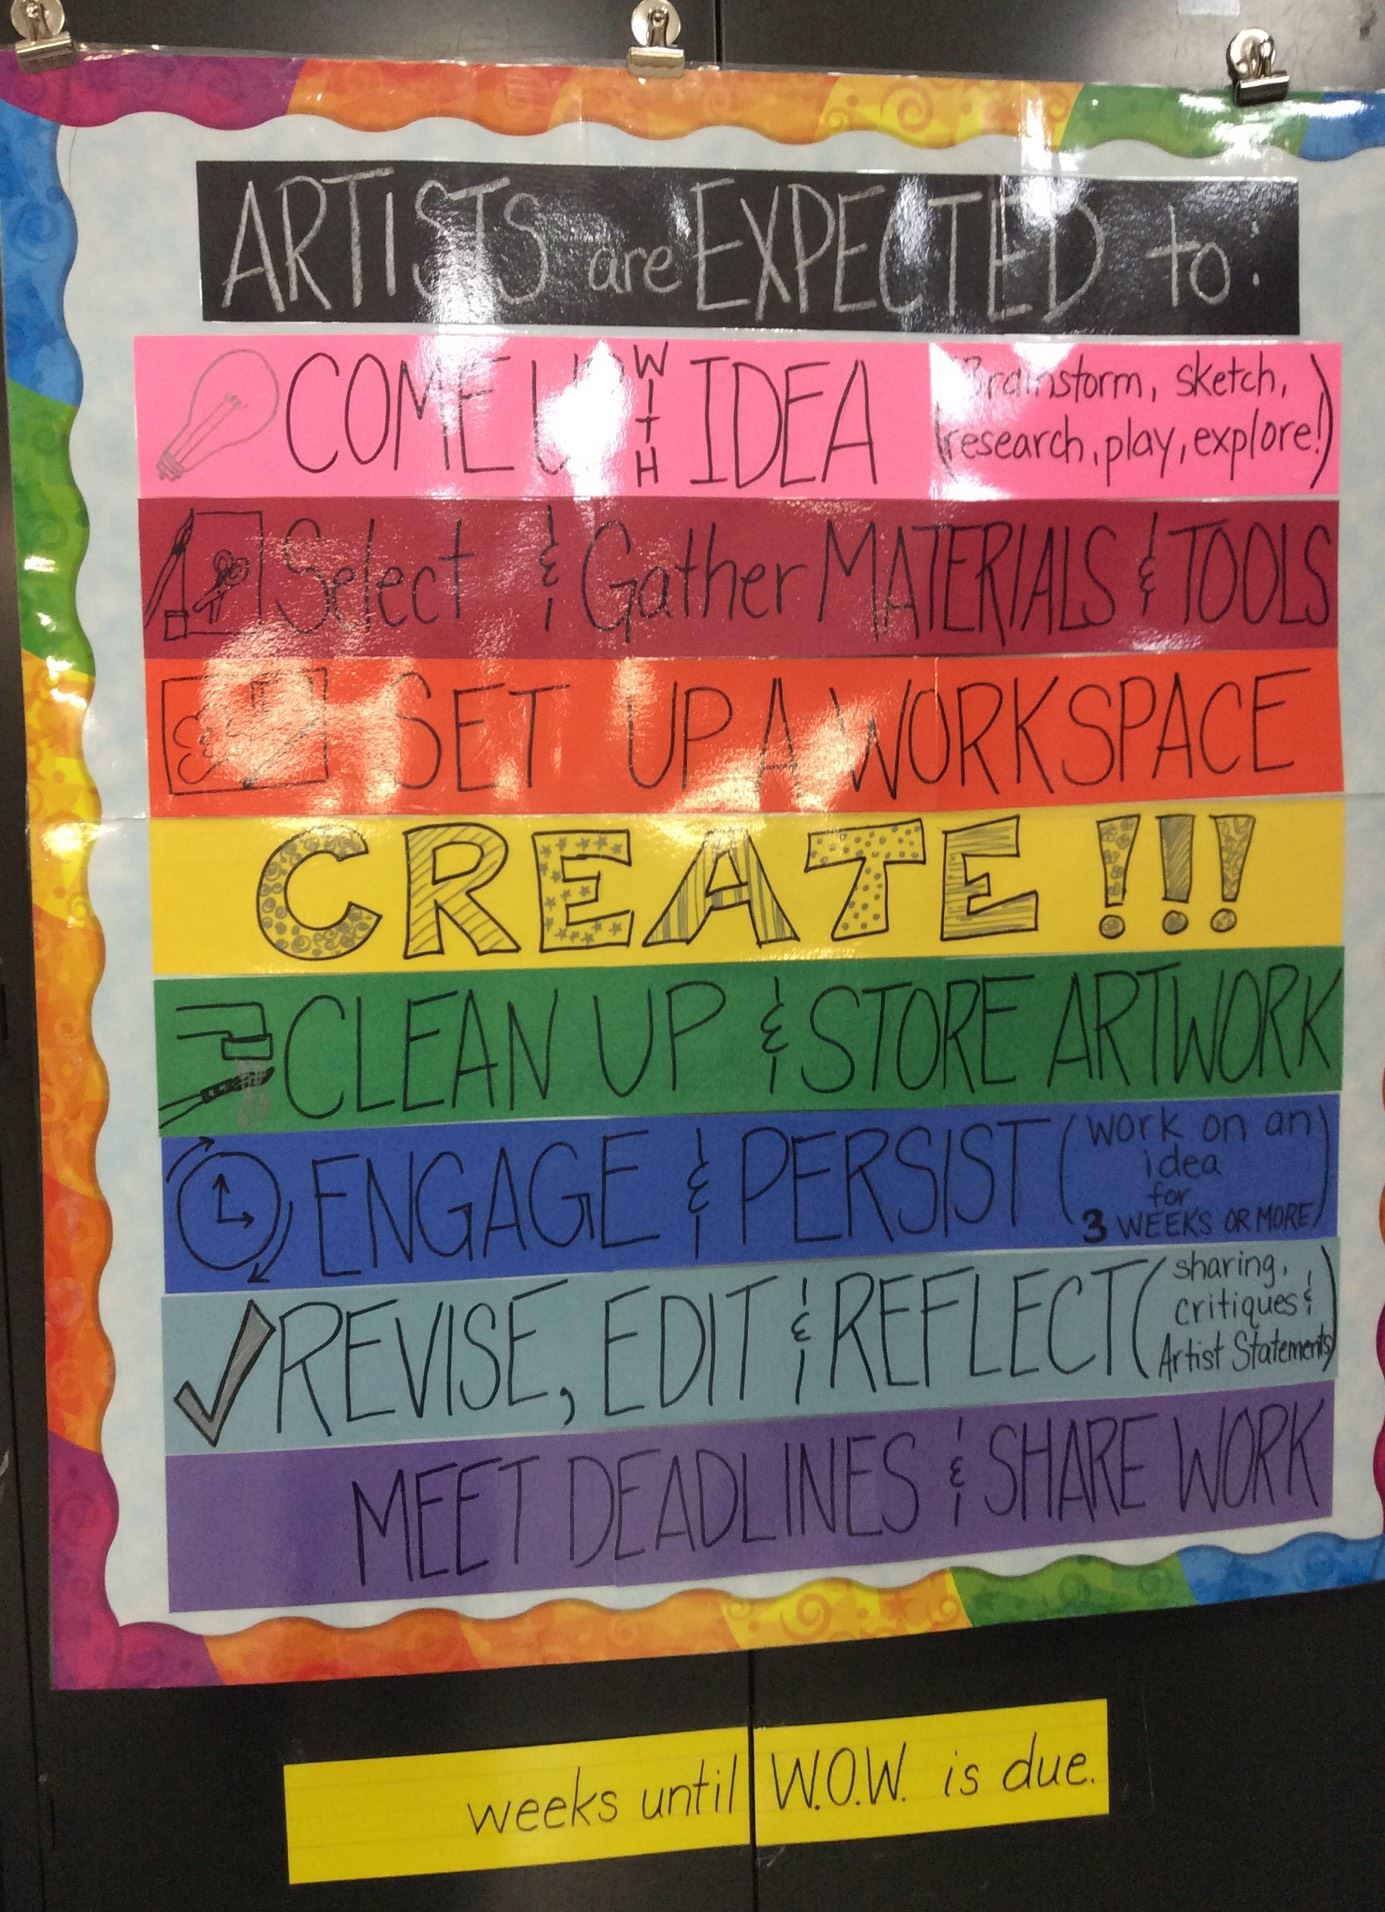 ARTISTS are EXPECTED to:
COME UP WITH IDEA (Brainstorm, sketch,
research, play, explore!)
Select & Gather MATERIALS & TOOLS
SET UP A WORKSPACE
CREATE!!!
CLEAN UP & STORE ARTWORK
ENGAGE & PERSIST (work on an
idea
for
3 WEEKS OR MORE)
REVISE, EDIT & REFLECT (sharing,
critiques &
Artist Statements)
MEET DEADLINES & SHARE WORK
weeks until W.O.W. is due.